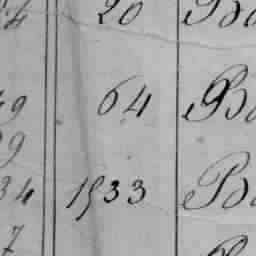 20 Ba
64 Ba
9
34 1533 Ba
7